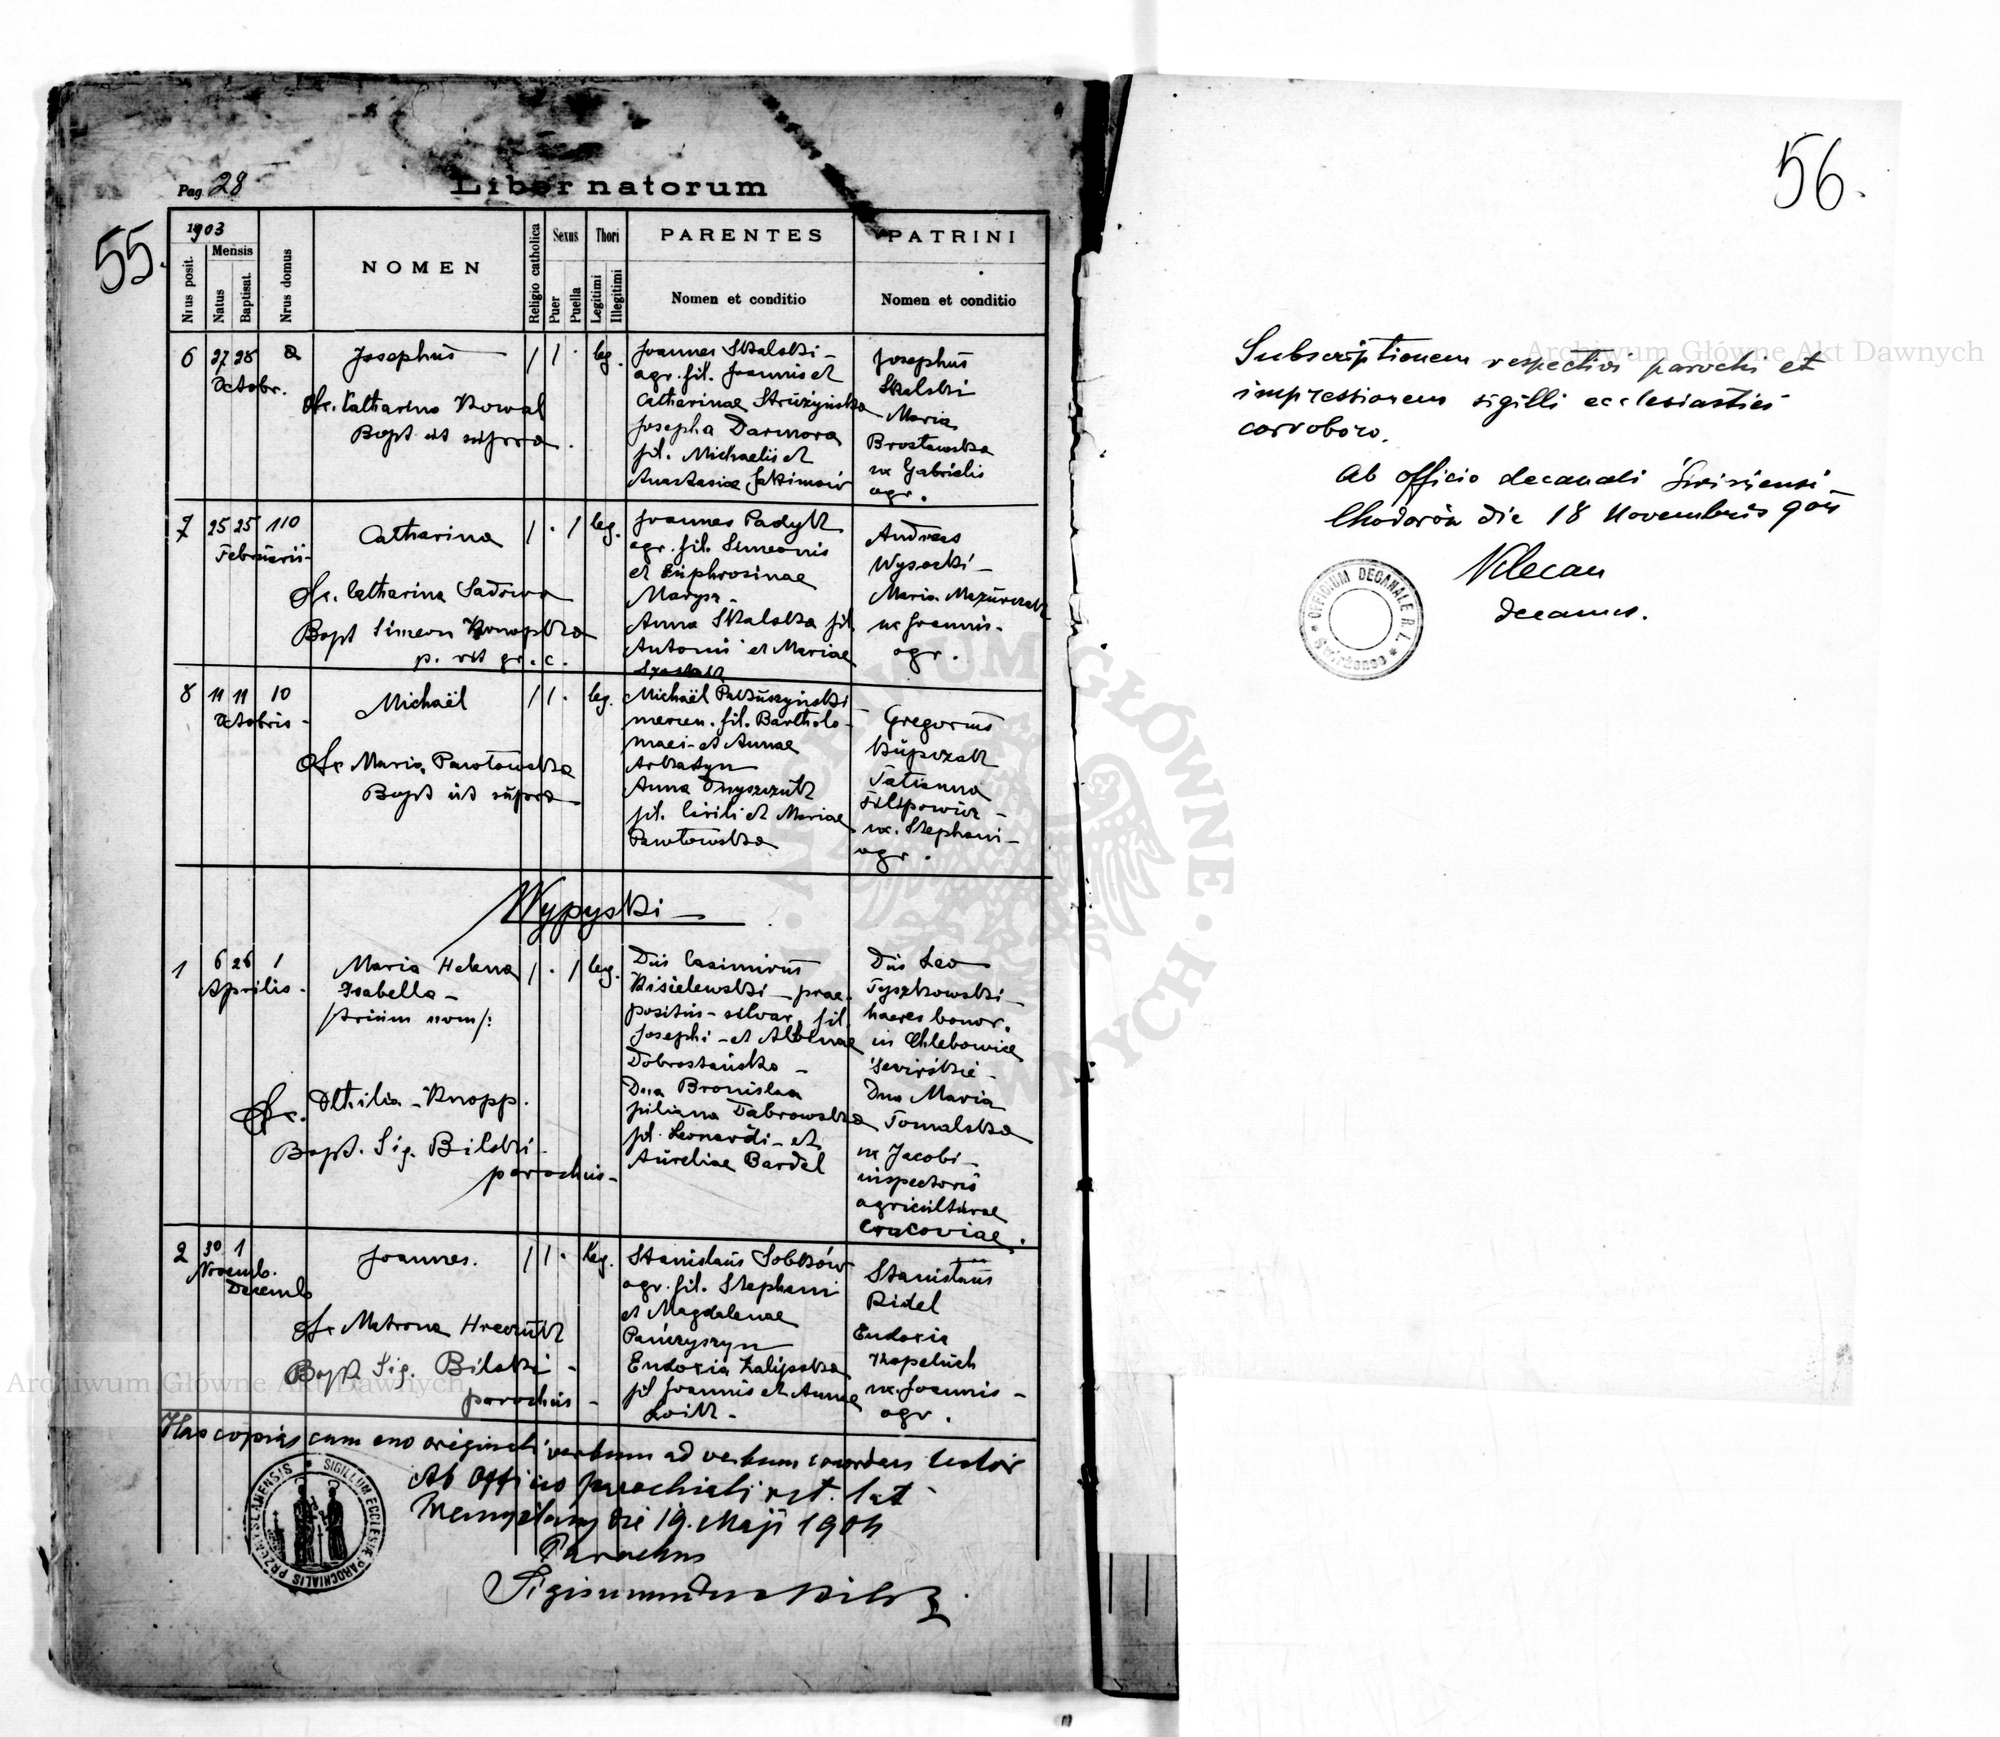 Pag. 28
Liber natorum
55.
1903
Nrus posit.
Mensis
Natus
Baptisat.
Nrus domus
NOMEN
Religio catholica
Sexus
Puer
Puella
Thori
Legitimi
Illegitimi
PARENTES
Nomen et conditio
PATRINI
Nomen et conditio
6 27 28
Octobr.
Josephus
Obs. Catharina Kowal
Bapt ut supra.
1 1 · leg.
Joannes Skalski –
agr. fil. Joannis et
Catharinae Strużyńska
Josepha Darmora
fil. Michaelis et
Anastasiae Jakimów
Josephus
Skalski
Maria
Brosławska
ux Gabrielis
agr.
7 25 25 110
Februarii –
Catharina
Obs. Catharina Sadowa
Bapt Simeon Konopka
p. rit gr. c.
1 · 1 leg.
Joannes Padyk
agr. fil. Simeonis
et Euphrosinae
Marysz –
Anna Skalska fil.
Antonii et Mariae
Andreas
Wysocki –
Maria Mazurczak
ux Joannis –
agr.
8 11 11 10
Octobris –
Michaël
Obs Maria Pawłowska
Bapt ut supra –
1 1 · leg.
Michaël Pakuszyński
mercen. fil. Bartholo-
maei – et Annae
Arkadyn
Anna Onyszczuk
fil. Cirili et Mariae
Pawłowska
Gregorius
Kupczak
Tatianna
Filipowicz –
ux. Stephani –
agr.
Wypyski –
1 6 26 1
Aprilis –
Maria Helena
Isabella –
/: trium nom :/
Obs. Othilia – Knopp.
Bapt. Sig. Bilski –
parochus –
1 · 1 leg.
Dns Casimirus
Kisielewski – prae-
positus – silvar. fil.
Josephi – et Albinae
Dobrostańska –
Dna Bronislaa
Juliana Dąbrowska
fil. Leonardi – et
Aureliae Bardel
Dns Leo
Tyszkowski –
haeres bonor.
in Chlebowice
Świrskie –
Dna Maria
Tomalska
ux Jacobi –
inspectoris
agriculturae
Cracoviae.
2 30 1
Novemb.
Decemb
Joannes.
Obs Matrona Hreczuk
Bapt. Sig. Bilski –
parochus –
1 1 · leg.
Stanislaus Sobków
agr. fil. Stephani
et Magdalenae
Pańczyszyn
Eudoxia Zalipska
fil Joannis et Annae
Łoik –
Stanislaus
Ridel
Eudoxia
Kapeluch
ux. Joannis –
agr.
Has copias cum suo originali verbum ad verbum concordare testor
Ab Officio parochiali rit. lat
die 19. Maji 1904
Parochus
Sigismundus Bilski
SIGILLUM ECCLESIAE PAROCHIALIS PRZEMYSLANENSIS
56.
Subscriptionem respectivi parochi et
impressionem sigilli ecclesiastici
corroboro.
Ab officio decanali Świrżensi –
Chodorów die 18 Novembris 904
OFFICIUM DECANALE R. L.
Swirżense
Klecan
decanus.
Archiwum Główne Akt Dawnych
Archiwum Główne Akt Dawnych
ARCHIWUM GŁÓWNE AKT DAWNYCH